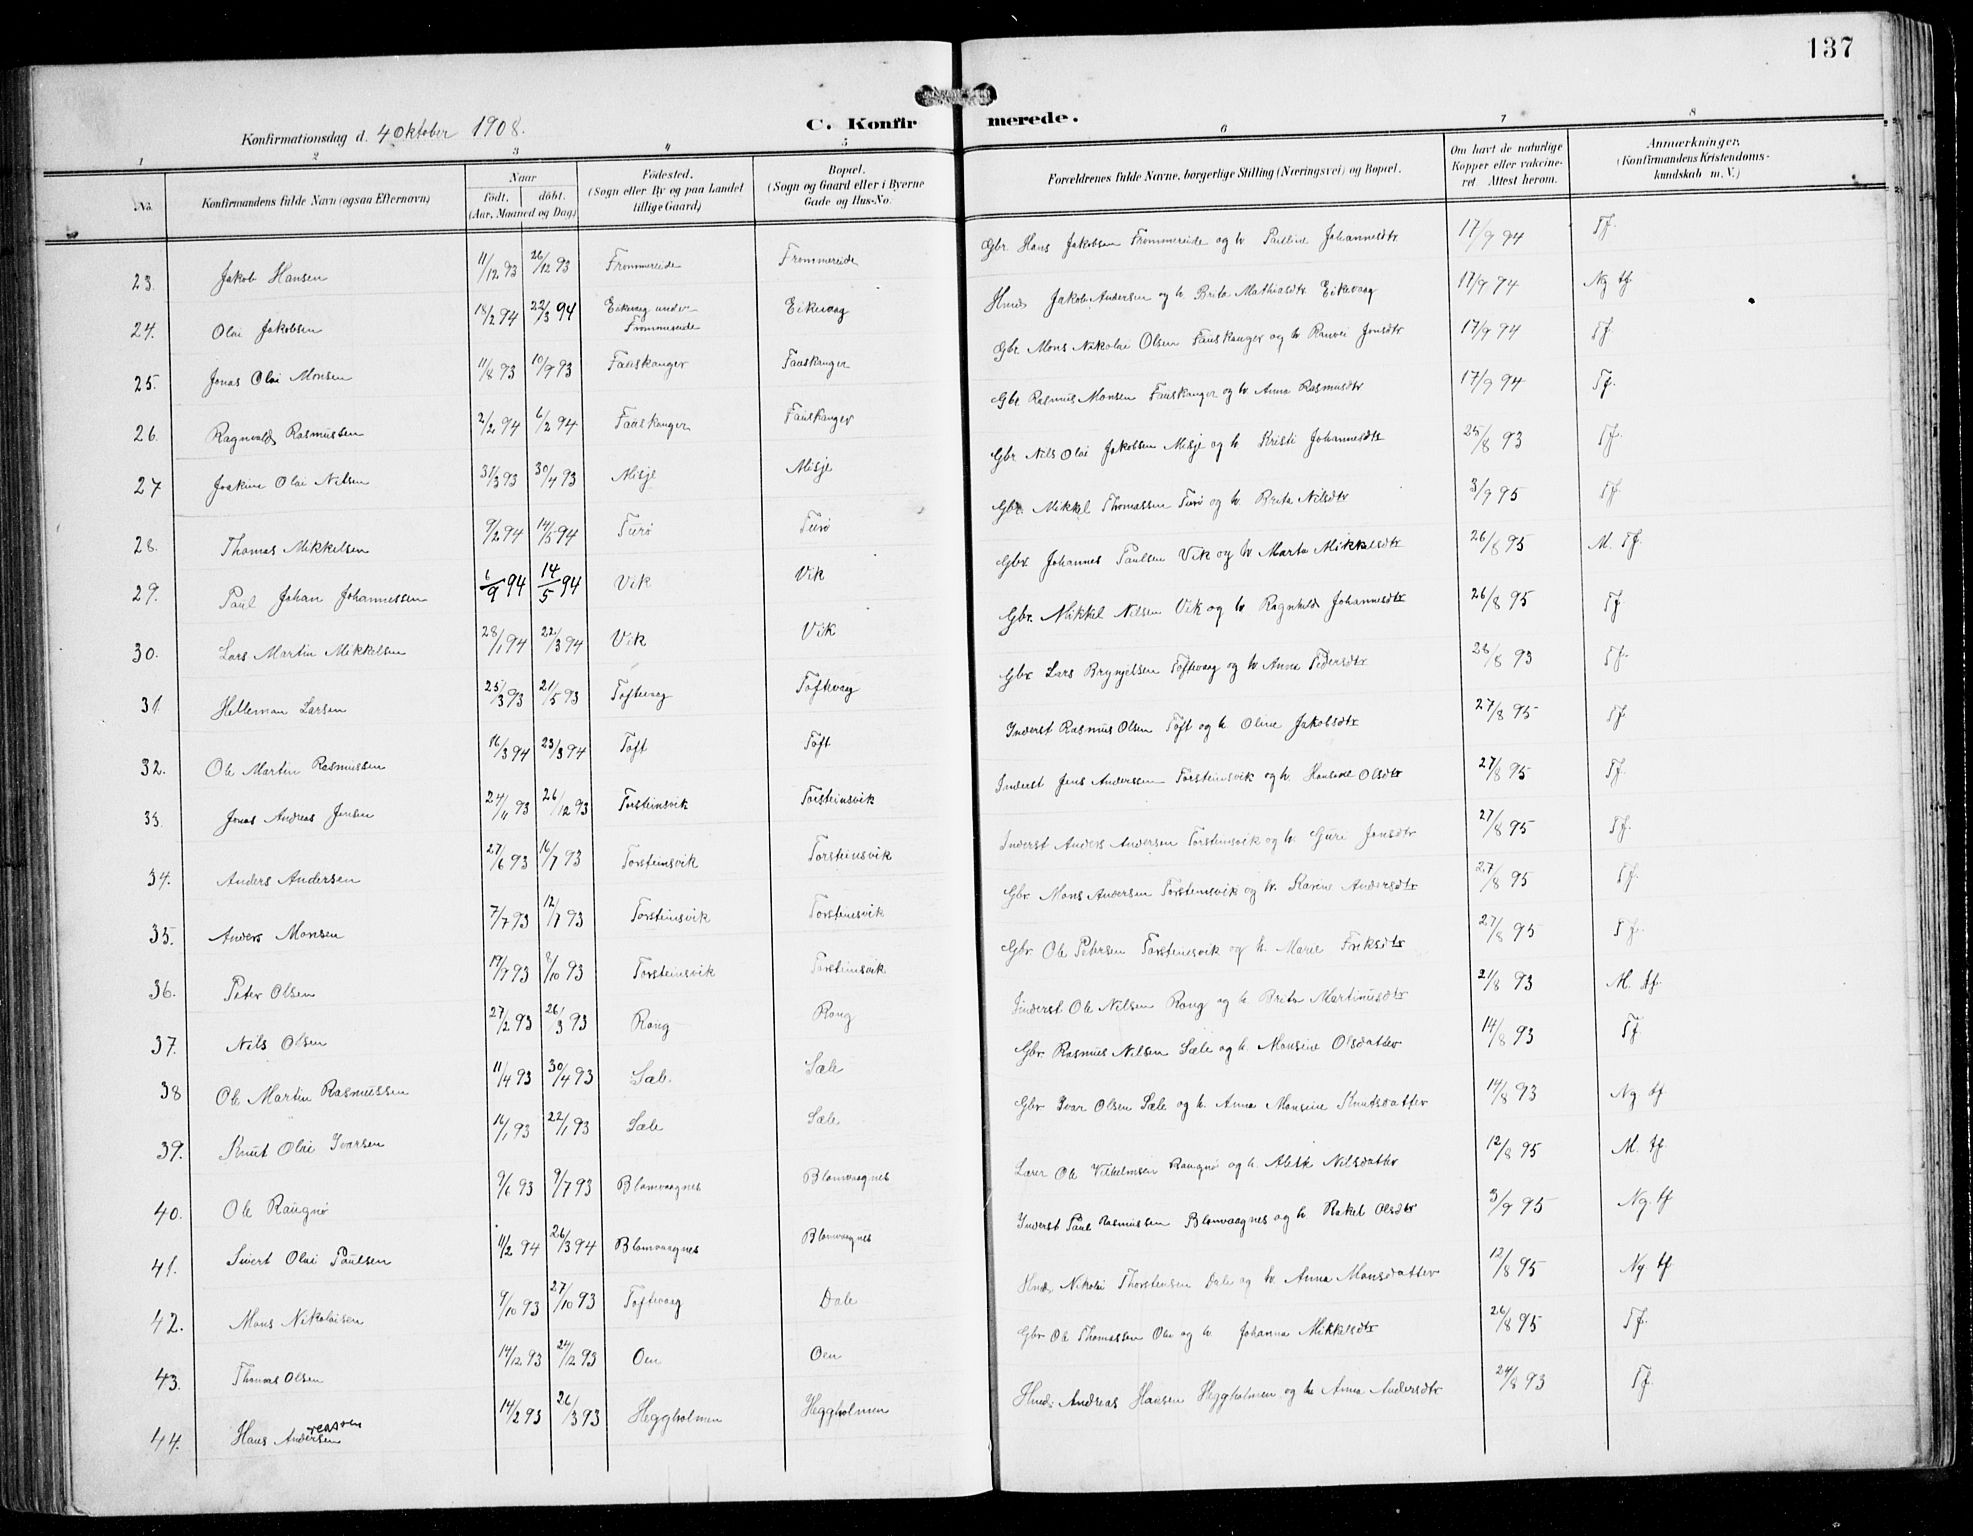 137
Konfirmationsdag d. 4 Oktober 1908.
C. Konfirmerede.
1 2 3 4 5 6 7 8
No. Konfirmandens fulde Navn (ogsaa Efternavn) Naar født, døbt. (Aar, Maaned og Dag) Fødested. (Sogn eller By og paa Landet tillige Gaard) Bopæl. (Sogn og Gaard eller i Byerne Gade og Hus-No. Forældrenes fulde Navne, borgerlige Stilling (Næringsvei) og Bopæl. Om havt de naturlige Kopper eller vaccineret. Attest herom. Anmærkninger, (Konfirmandens Kristendomskundskab m. V.)
23. Jakob Hansen 11/12 93 26/12 93 Frommereide Frommereide Gbr. Hans Jakobsen Frommereide og h. Pauline Johannesdtr 17/9 94 Tf.
24. Olai Jakobsen 18/2 94 22/3 94 Eikevaag under Frommereide Eikevaag Hmd Jakob Andersen og h. Brita Mathiasdtr Eikevaag 17/9 94 Ng tf
25. Jonas Olai Monsen 11/8 93 10/9 93 Faaskanger Faaskanger Gbr. Mons Nikolai Olsen Fauskanger og h Ranvei Jonsdtr 17/9 94 Tf
26. Ragnvald Rasmussen 2/2 94 6/2 94 Faaskanger Fauskanger Gbr Rasmus Monsen Fauskanger og h Anna Rasmusdtr 17/9 94 Tf.
27 Joakim Olai Nilsen 31/3 93 30/4 93 Misje Misje Gbr. Nils Olai Jakobsen Misje og h Kristi Johannesdtr 25/8 93 Tf.
28. Thomas Mikkelsen 9/2 94 14/5 94 Turø Turø Gbr. Mikkel Thomassen Turø og h. Brita Nilsdtr 3/9 95 Tf
29. Paul Johan Johannessen 6/9 94 14/5 94 Vik Vik Gbr Johannes Paulsen Vik og h Marta Mikkelsdtr 26/8 95 M. Tf.
30. Lars Martin Mikkelsen 28/1 94 22/3 94 Vik Vik Gbr. Mikkel Nilsen Vik og h Ragnhild Johannesdtr 26/8 95 Tf
31. Helleman Larsen 25/3 93 21/5 93 Toftevag Toftevag Gbr Lars Brynjelsen Toftevaag og h Anna Pedersdtr 28/8 93 Tf.
32. Ole Martin Rasmussen 16/3 94 23/3 94 Toft Toft Inderst Rasmus Olsen Toft og h. Oline Jakobsdtr 27/8 95 Tf.
33. Jonas Andreas Jensen 24/11 93 26/12 93 Torsteinsvik Torsteinsvik Inderst Jens Anderssen Torsteinsvik og h. Hansine Olsdtr 27/8 95 Tf.
34. Anders Andersen 27/6 93 16/7 93 Torsteinsvik Torsteinsvik Inderst Anders Andersen Torsteinsvik og h. Guri Jonsdtr 27/8 95 Tf.
35. Anders Monsen 7/7 93 12/7 93 Torsteinsvik Torsteinsvik Gbr. Mons Andersen Torsteinsvik og h. Karine Andersdtr 27/8 95 Tf.
36. Peter Olsen 19/9 93 8/10 93 Torsteinsvik Torsteinsvik Gbr. Ole Petersen Torsteinsvik og h. Marie Eriksdtr 27/8 95 Tf.
37. Nils Olsen 27/2 93 26/3 93 Rong Rong Inderst Ole Nilsen Rong og h. Brita Martinusdtr 21/8 93 M. tf.
38 Ole Martin Rasmussen 11/4 93 30/4 93 Sæle Sæle Gbr. Rasmus Nilsen Sæle og h. Monsine Olsdatter 14/8 93 Tf
39. Knut Olai Ivarsen 16/1 93 22/1 93 Sæle Sæle Gbr Ivar Olsen Sæle og h. Anna Monsine Knutsdatter 14/8 93 Ng tf
40. Ole Raugnø 9/6 93 9/7 93 Blomvaagnes Blomvaagnes Lærer Ole Vilhelmsen Raugnø og h. Alette Nilsdatter 12/8 95 M. tf.
41. Sivert Olai Paulsen 11/2 94 26/3 94 Blomvaagnes Blomvaagnes Inderst Paul Rasmussen Blomvaagnes og h. Rakel Olsdtr 3/9 95 Ng. tf
42. Mons Nikolaisen 9/10 93 27/10 93 Toftevaag Dale Hmd. Nikolai Thorstensen Dale og h. Anna Monsdatter 12/8 95 Ng tf
43. Thomas Olsen 14/12 93 24/12 93 Oen Oen Gbr Ole Thomassen Oen og h. Johanna Mikkelsdtr 26/8 95 Tf.
44. Hans Andersen reassen 14/2 93 26/3 93 Heggholmen Heggholmen Hmd. Andreas Hansen Heggholmen og h Anna Andersdtr 24/8 93 Tf.